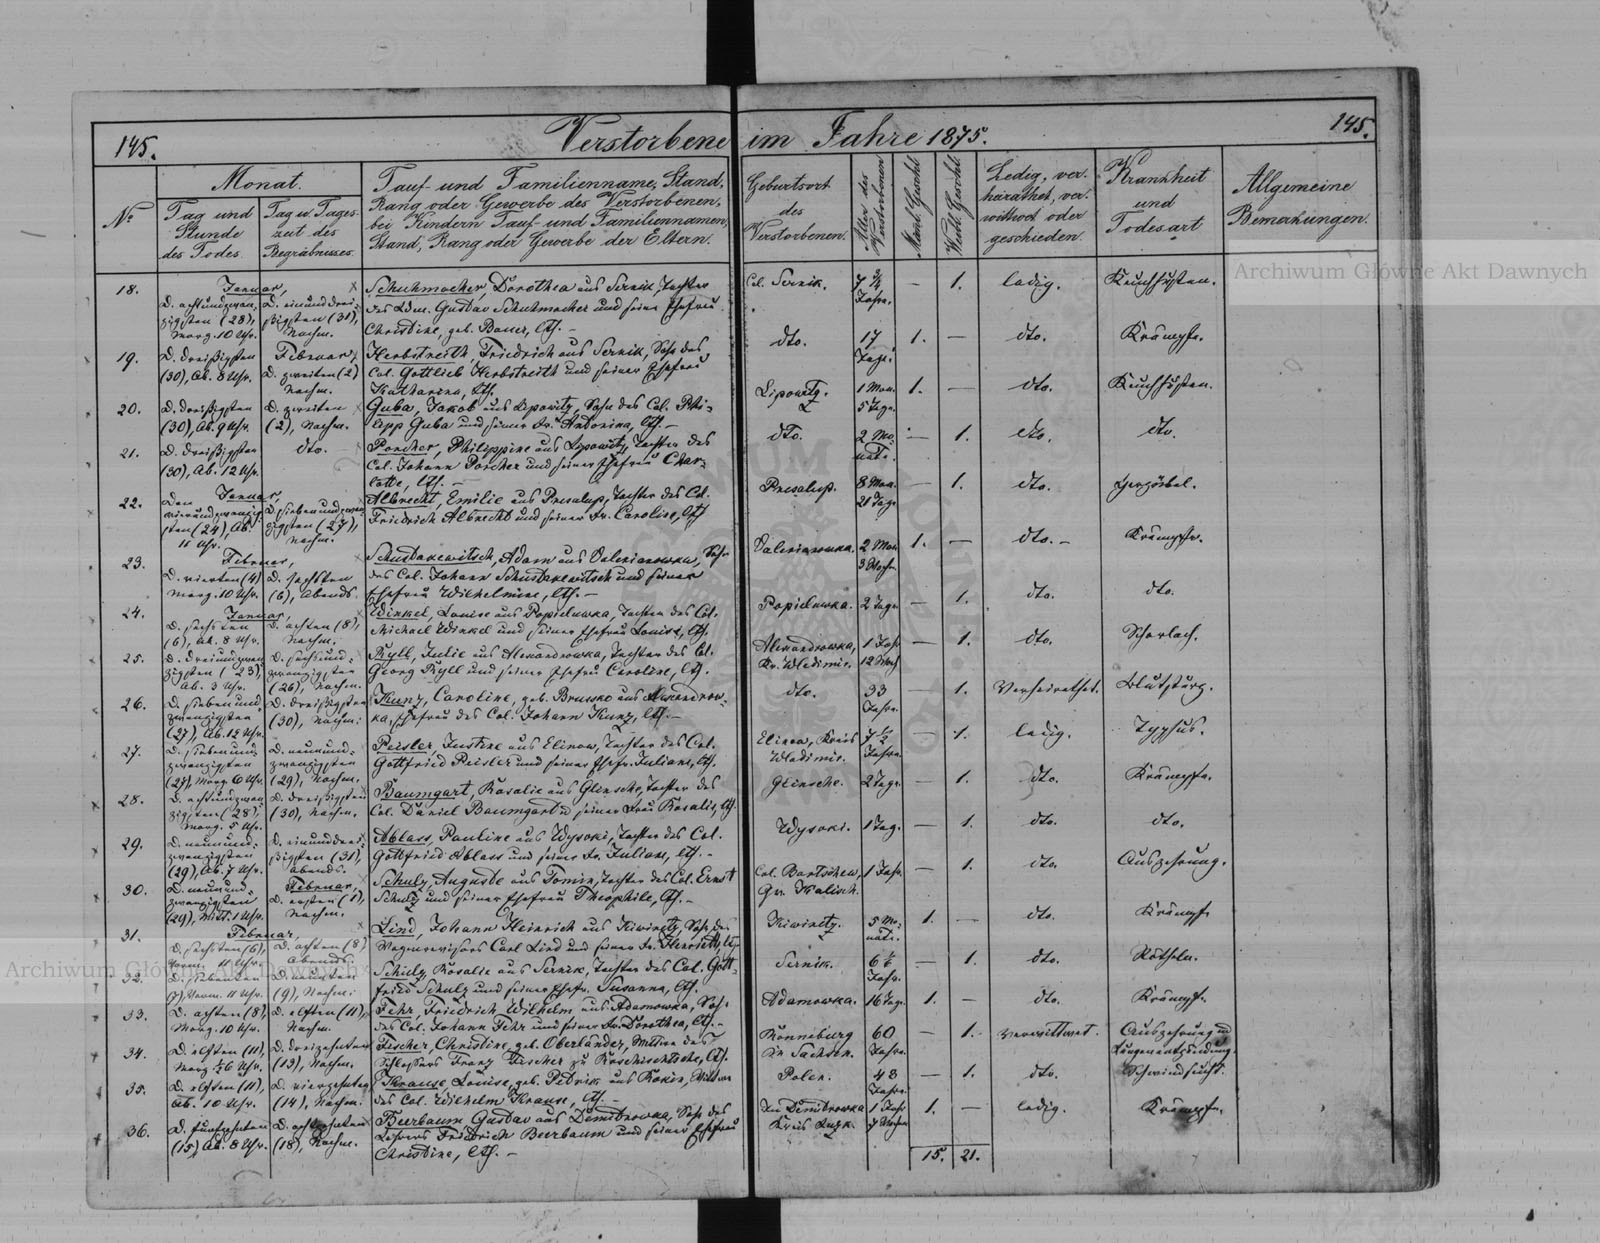 145.
Verstorbene im Jahre 1875.
145.
Nº
Monat.
Tag und
Stunde
des Todes.
Tag u. Tages-
zeit des
Begräbnisses.
Tauf- und Familienname, Stand,
Rang oder Gewerbe des Verstorbenen,
bei Kindern Tauf- und Familiennamen,
Stand, Rang oder Gewerbe der Eltern.
Geburtsort
des
Verstorbenen.
Alter des
Verstorbenen
Männl. Geschl.
Weibl. Geschl.
Ledig, ver-
heirathet, ver-
wittwet oder
geschieden.
Krankheit
und
Todesart
Allgemeine
Bemerkungen.
18.
Januar,
D. achtundzwan-
zigsten (28),
Morg. 10 Uhr.
D. einunddrei-
ßigsten (31),
Nachm.
Schuhmacher, Dorothea aus Sernik, Tochter
des Gustav Schuhmacher und seiner Ehefrau
Christine, geb. Bauer, Eth. –
Col. Sernik.
7 3/4
Jahre.
– 1.
ledig.
Keuchhusten.
19.
D. dreißigsten
(30), Ab. 8 Uhr.
Februar,
D. zweiten (2)
Nachm.
Herbstreith, Friedrich aus Sernik, Sohn des
Col. Gottlieb Herbstreith und seiner Ehefrau
Katharina, Eth.
dto.
17
Tage.
1. –
dto.
Krämpfe.
20.
D. dreißigsten
(30), Ab. 9 Uhr.
D. zweiten
(2), Nachm.
Guba, Jakob aus Lipowitz, Sohn des Col. Phi-
lipp Guba und seiner Fr. Antonina, Eth. –
Lipowitz.
1 Mon.
5 Tage.
1. –
dto.
Keuchhusten.
21.
D. dreißigsten
(30), Ab. 12 Uhr.
dto.
Porcher, Philippine aus Lipowitz, Tochter des
Col. Johann Porcher und seiner Ehefrau Char-
lotte, Eth. –
dto.
2 Mo-
nate.
– 1.
dto.
dto.
22.
Januar,
Den
vierundzwanzig-
sten (24), Ab.
11 Uhr.
D. siebenundzwan-
zigsten (27),
Nachm.
Albrecht, Emilie aus Presalup, Tochter des Col.
Friedrich Albrecht und seiner Fr. Caroline, Eth.
Presalup.
8 Mon.
21 Tage
– 1.
dto.
23.
Februar,
D. vierten (4)
Morg. 10 Uhr.
D. sechsten
(6), Abends.
Schustakewitsch, Adam aus Valerianowka, Sohn
des Col. Johann Schustakewitsch und seiner
Ehefrau Wilhelmine, Eth. –
Valerianowka.
2 Mon.
3 Woch.
1. –
dto. –
Krämpfe.
24.
Januar,
D. sechsten
(6), Ab. 8 Uhr.
D. achten (8),
Nachm.
Winkel, Louise aus Popieluwka, Tochter des Col.
Michael Winkel und seiner Ehefrau Louise, Eth.
Popieluwka.
2 Tage.
– 1.
dto.
dto.
25.
D. dreiundzwan-
zigsten (23),
Ab. 3 Uhr.
D. sechsund-
zwanzigsten
(26), Nachm.
Ryll, Julie aus Alexandrowka, Tochter des Col.
Georg Ryll und seiner Ehefrau Caroline, Eth.
Alexandrowka,
Kr. Wladimir.
1 Jahr
12 Woch.
– 1.
dto.
Scharlach.
26.
D. siebenund-
zwanzigsten
(27), Ab. 12 Uhr.
D. dreißigsten
(30), Nachm.
Kunz, Caroline, geb. Brusko aus Alexandrow-
ka, Ehefrau des Col. Johann Kunz, Eth. –
dto.
33
Jahre.
– 1.
Verheirathet.
Blutsturz.
27.
D. siebenund-
zwanzigsten
(27), Morg. 6 Uhr.
D. neunund-
zwanzigsten
(29), Nachm.
Peisler, Justine aus Elinow, Tochter des Col.
Gottfried Peisler und seiner Ehefr. Juliane, Eth.
Elinow, Kreis
Wladimir.
7 1/2
Jahre.
– 1.
ledig.
Typhus.
28.
D. achtundzwan-
zigsten (28),
Morg. 5 Uhr.
D. dreißigsten
(30), Nachm.
Baumgart, Rosalie aus Glinsche, Tochter des
Col. Daniel Baumgart u seiner Frau Rosalie, Eth.
Glinsche.
2 Tage.
– 1.
dto.
Krämpfe.
29.
D. neunund-
zwanzigsten
(29), Ab. 7 Uhr.
D. einunddrei-
ßigsten (31),
Abends.
Ablass, Pauline aus Wysoki, Tochter des Col.
Gottfried Ablass und seiner Fr. Juliane, Eth. –
Wysoki.
1 Tag.
– 1.
dto.
dto.
30.
D. neunund-
zwanzigsten
(29), Mitt. 1 Uhr.
Februar,
D. ersten (1),
Nachm.
Schulz, Auguste aus Tomin, Tochter des Col. Ernst
Schulz und seiner Ehefrau Theophile, Eth. –
Col. Bartschew,
Gv. Kalisch.
1 Jahr.
– 1.
dto.
Auszehrung.
31.
Februar,
D. sechsten (6),
Vorm. 11 Uhr.
D. achten (8)
Abends.
Lind, Johann Heinrich aus Kiwiretz, Sohn des
Wagenrevisors Carl Lind und seiner Fr. Henriette, Eth.
Kiwiretz.
5 Mo-
nate.
1. –
dto.
Krämpfe
32.
D. siebenten
(7), Vorm. 11 Uhr.
D. neunten
(9), Nachm.
Schulz, Rosalie aus Sernik, Tochter des Col. Gott-
fried Schulz und seiner Ehefr. Susanna, Eth.
Sernik.
6 1/2
Jahre.
– 1.
dto.
Rötheln.
33.
D. achten (8),
Morg. 10 Uhr.
D. elften (11),
Nachm.
Fehr, Friedrich Wilhelm aus Adamowka, Sohn
des Col. Johann Fehr und seiner Fr. Dorothea, Eth. –
Adamowka.
16 Tage.
1. –
dto.
Krämpfe.
34.
D. elften (11),
Morg. 1/2 6 Uhr.
D. dreizehnten
(13), Nachm.
Fischer, Christine, geb. Oberländer, Wittwe des
Schlossers Franz Fischer zu Roschischtsche, Eth.
Ronneburg
in Sachsen.
60
Jahre.
– 1.
Verwittwet.
Auszehrung und
Lungenentzündung.
35.
D. elften (11),
Ab. 10 Uhr.
D. vierzehnten
(14), Nachm.
Krause, Louise, geb. Petrik aus Rokin, Wittwe
des Col. Wilhelm Krause, Eth. –
Polen.
48
Jahre.
– 1.
dto.
Schwindsucht.
36.
D. fünfzehnten
(15), Ab. 8 Uhr.
D. achtzehnten
(18), Nachm.
Beerbaum, Gustav aus Dembrowka, Sohn des
Lehrers Friedrich Beerbaum und seiner Ehefrau
Christine, Eth. –
Dembrowka
Kreis Luzk.
1 Jahr
7 Wochen
1. –
ledig.
Krämpfe.
15. 21.
Archiwum Główne Akt Dawnych
Archiwum Główne Akt Dawnych